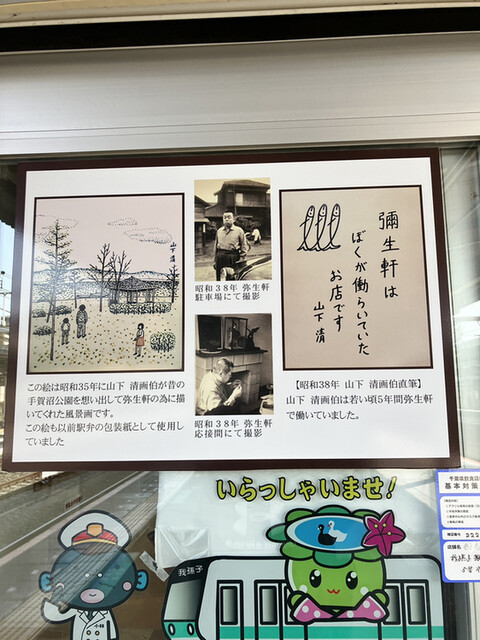 山下清
この絵は昭和35年に山下 清画伯が昔の
手賀沼公園を想い出して弥生軒の為に描
いてくれた風景画です。
この絵も以前駅弁の包装紙として使用し
ていました
昭和38年 弥生軒
駐車場にて撮影
昭和38年 弥生軒
応接間にて撮影
彌生軒は
ぼくが働らいていた
お店です
山下 清
【昭和38年 山下 清画伯直筆】
山下 清画伯は若い頃5年間弥生軒
で働いていました。
いらっしゃいませ!
我孫子
小林
千葉県飲食店
基本対策
店舗名